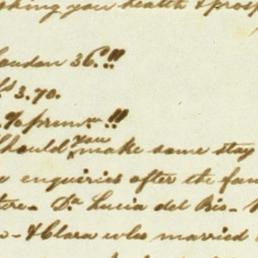 shing you health & prosp
London 36.!!
$3.70.
% prem.m !!
Should you make some stay
enquiries after the fam
Da. Lucia del Rio -
& Clara who married